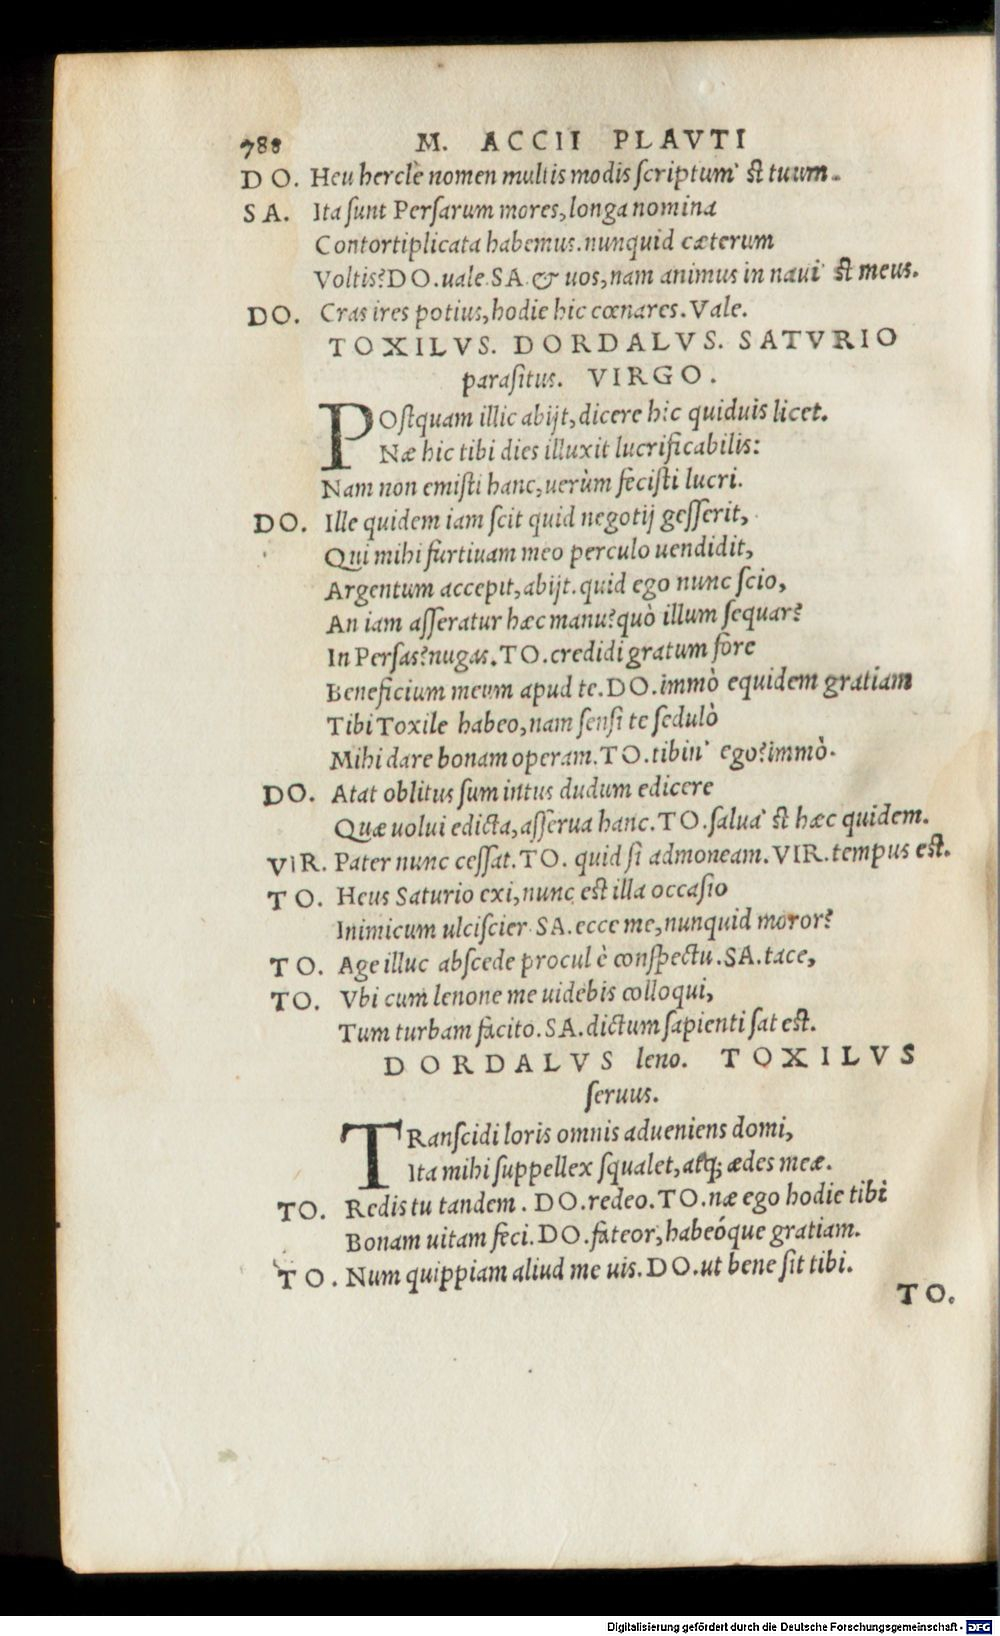 788 M. ACCII PLAVTI
DO. Heu herclè nomen multis modis scriptum' st tuum.
SA. Ita sunt Persarum mores, longa nomina
Contortiplicata habemus. nunquid cæterum
Voltis? DO. uale. SA. & uos, nam animus in naui' st meus.
DO. Cras ires potius, hodie hic cœnares. Vale.
TOXILVS. DORDALVS. SATVRIO
parasitus. VIRGO.
POstquam illic abijt, dicere hic quiduis licet.
Næ hic tibi dies illuxit lucrificabilis:
Nam non emisti hanc, uerùm fecisti lucri.
DO. Ille quidem iam scit quid negotij gesserit,
Qui mihi furtiuam meo perculo uendidit,
Argentum accepit, abijt. quid ego nunc scio,
An iam asseratur hæc manu? quò illum sequar?
In Persas? nugas. TO. credidi gratum fore
Beneficium meum apud te. DO. immò equidem gratiam
Tibi Toxile habeo, nam sensi te sedulò
Mihi dare bonam operam. TO. tibin' ego? immò.
DO. Atat oblitus sum intus dudum edicere
Quæ uolui edicta, asserua hanc. TO. salua' st hæc quidem.
VIR. Pater nunc cessat. TO. quid si admoneam. VIR. tempus est.
TO. Heus Saturio exi, nunc est illa occasio
Inimicum ulciscier. SA. ecce me, nunquid moror?
TO. Age illuc abscede procul è conspectu. SA. tace,
TO. Vbi cum lenone me uidebis colloqui,
Tum turbam facito. SA. dictum sapienti sat est.
DORDALVS leno. TOXILVS
seruus.
TRanscidi loris omnis adueniens domi,
Ita mihi suppellex squalet, atq; ædes meæ.
TO. Redis tu tandem. DO. redeo. TO. næ ego hodie tibi
Bonam uitam feci. DO. fateor, habeóque gratiam.
TO. Num quippiam aliud me uis. DO. ut bene sit tibi.
TO.
Digitalisierung gefördert durch die Deutsche Forschungsgemeinschaft - DFG